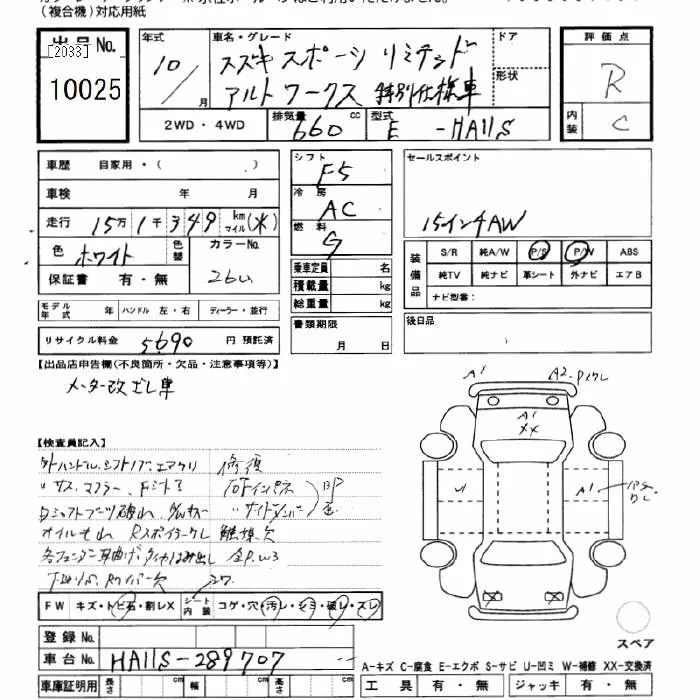 (複合機)対応用紙
出品No.
[2033]
10025
年式 10 / 月
車名・グレード
スズキ スポーツ リミテッド
アルトワークス 特別仕様車
ドア
形状
2WD・4WD
排気量 660 cc
型式 E -HA11S
評価点
R
内装 C
車歴 自家用・( )
車検 年 月
走行 15万 1千 3 4 9 km マイル (米)
色 ホワイト 色替
カラーNo. 26U
保証書 有・無
モデル年式 年 ハンドル 左・右 ディーラー・並行
リサイクル料金 5690 円 預託済
シフト F5
冷房 AC
燃料 G
乗車定員 名
積載量 kg
総重量 kg
書類期限
月 日
セールスポイント
15インチAW
装備品
S/R 純A/W P/S P/W ABS
純TV 純ナビ 革シート 外ナビ エアB
ナビ型番:
後日品
【出品店申告欄(不良箇所・欠品・注意事項等)】
メーター改ざん車
【検査員記入】
外ハンドル、シフトノブ、エアクリ 修復
〃サス、マフラー、Fシート
オイルもれ 触媒欠
下廻りサビ、Rワイパー欠
A1
A2
A1
XX
A1
FW キズ・トビ石・割レX シート内装 コゲ・穴・汚レ・シミ・破レ・スレ
登録No.
車台No. HA11S-289707
車庫証明用 長さ cm 幅 cm 高さ cm
スペア
A-キズ C-腐食 E-エクボ S-サビ U-凹ミ W-補修 XX-交換済
工具 有・無 ジャッキ 有・無